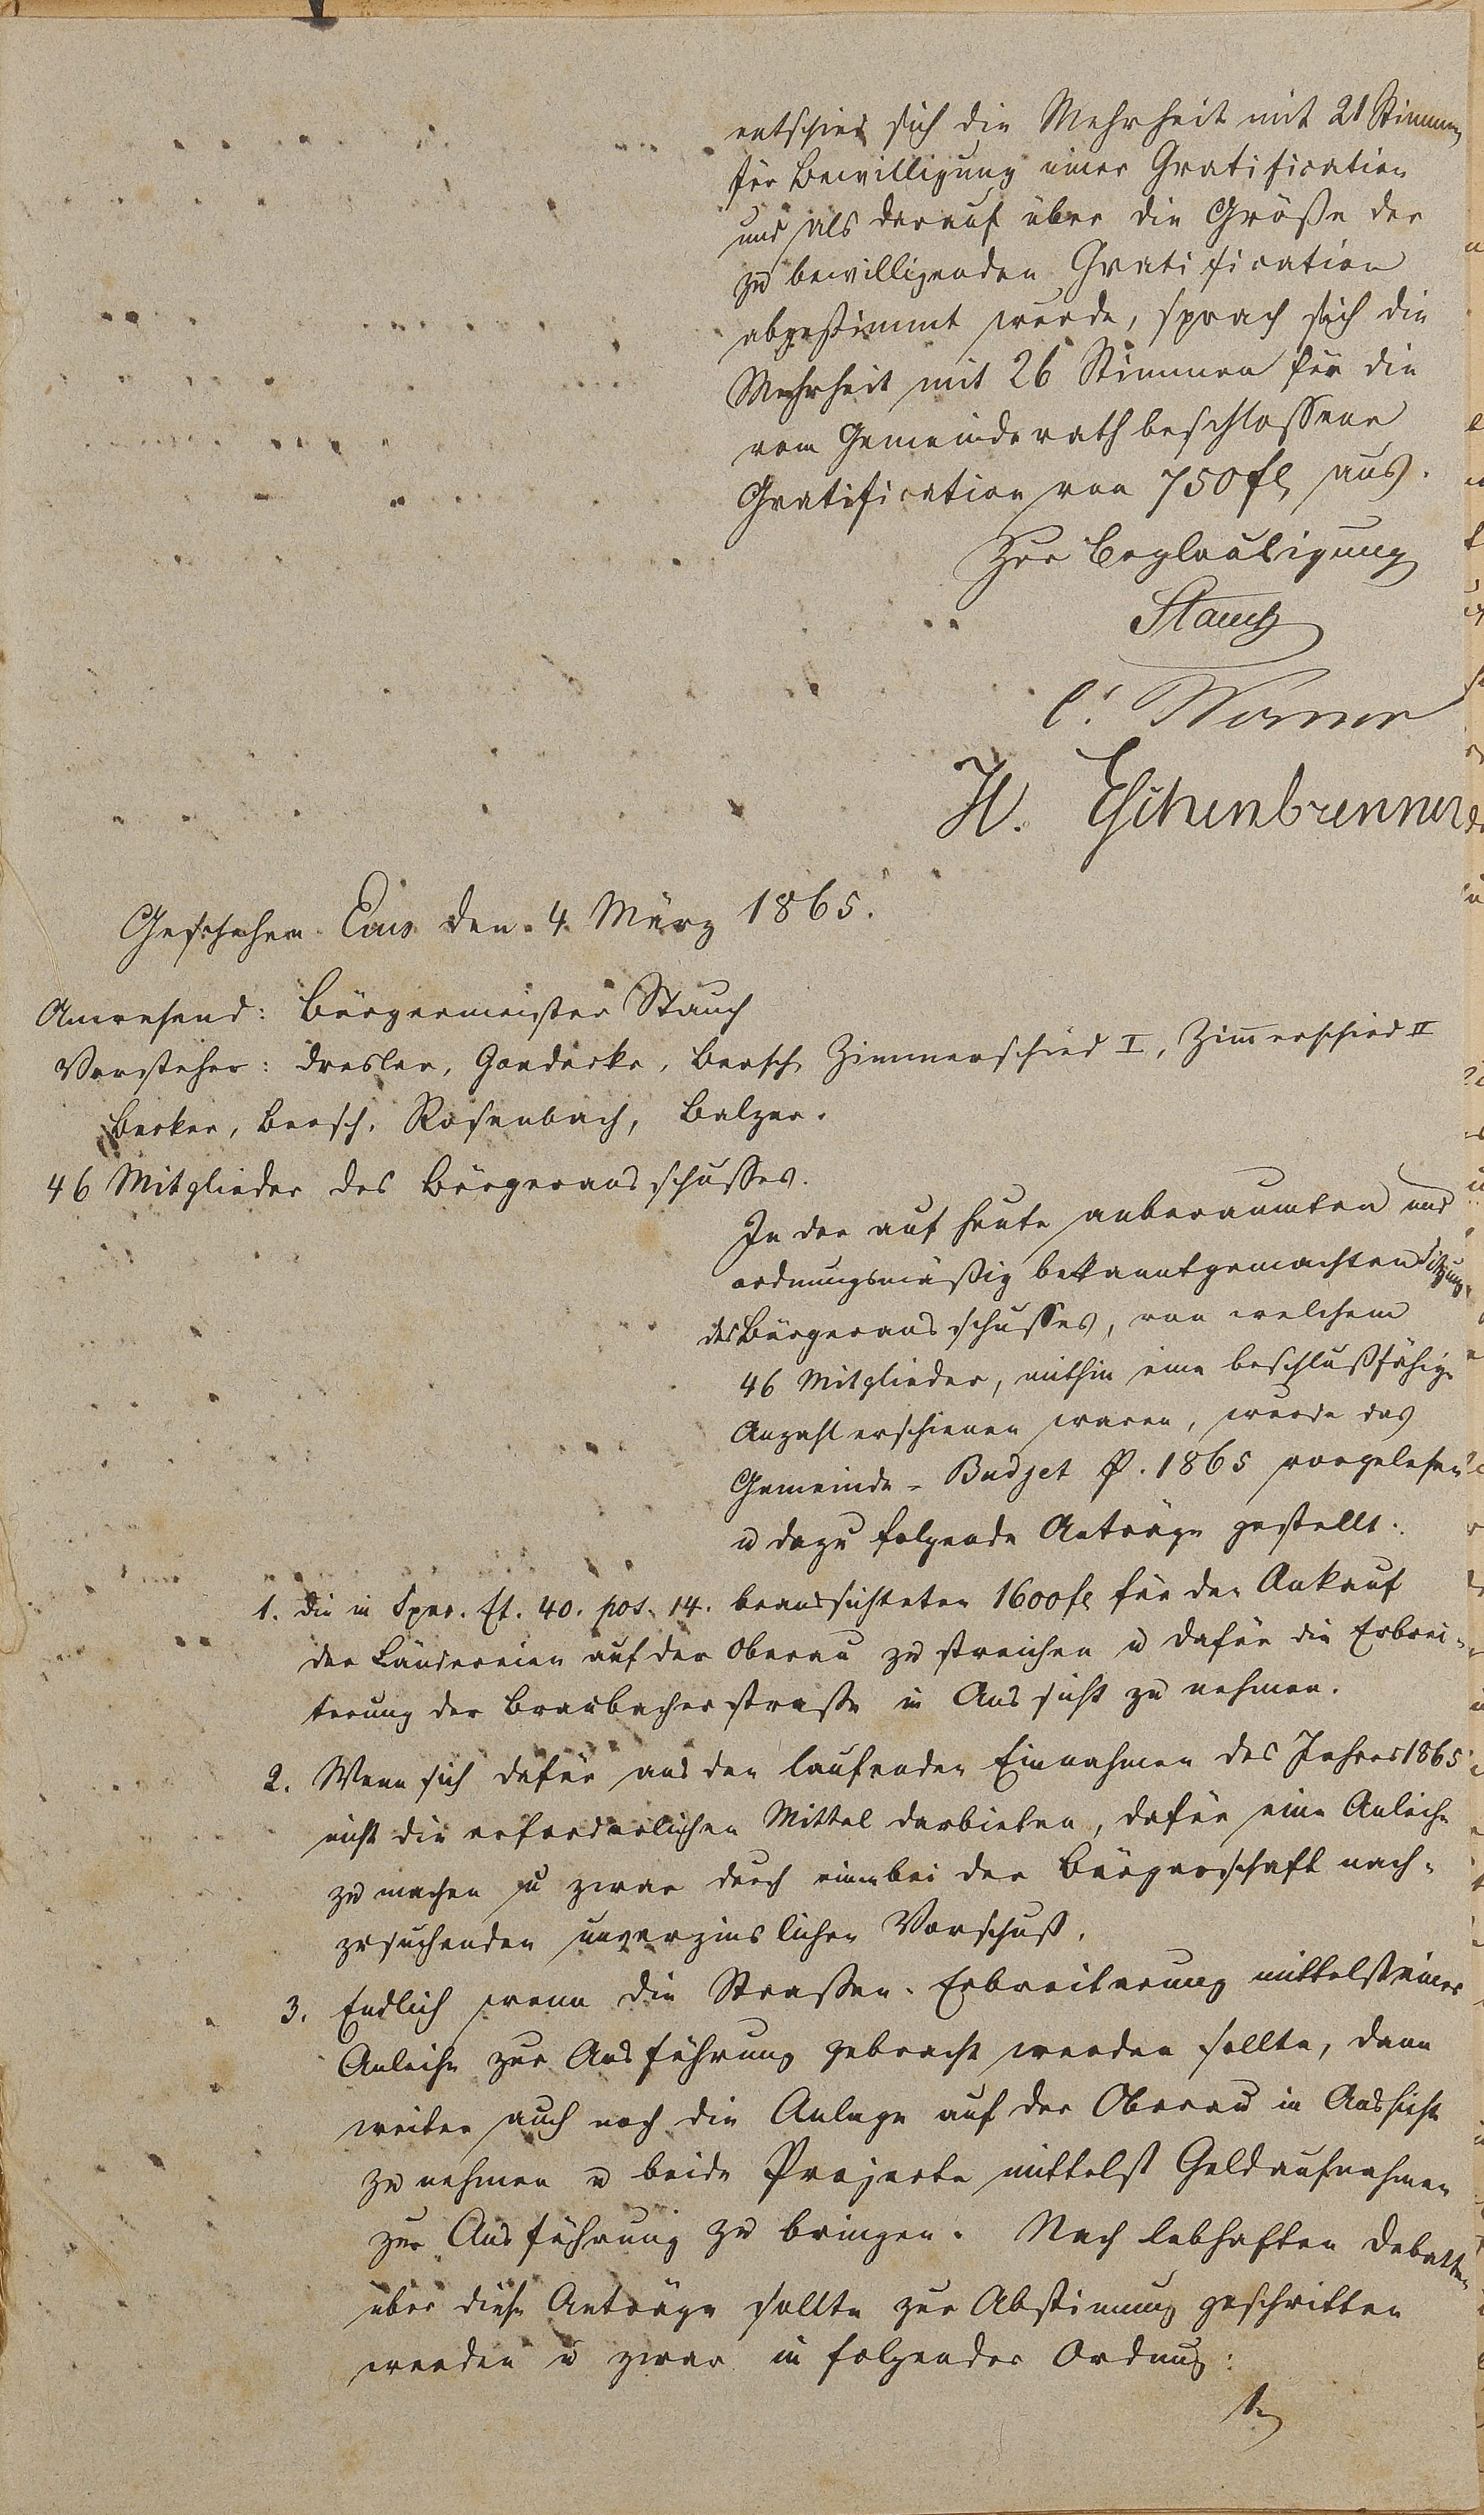 entschied sich die Mehrheit mit 21 Stimmen
für Bewilligung einer Gratification
und als darauf über die Größe der
zu bewilligenden Gratification
abgestimmt wurde, sprach sich die
Mehrheit mit 26 Stimmen für die
vom Gemeinderath beschlossene
Gratification von 750 fl aus.
Zur Beglaubigung
Stauch
C. Werner
H. Eschenbrenner
Geschehen Ems den 4 März 1865.
Anwesend: Bürgermeister Stauch
Vorsteher: Dresler, Gondecke, Bersch, Zimmerschied I, Zim̄erschied II
Becker, Bersch, Rosenbach, Balzer.
46 Mitglieder des Bürgerausschusses.
In der auf heute anberaumten und
ordnungsmäßig bekanntgemachten Sitzung
des Bürgerausschusses, von welchem
46 Mitglieder, mithin eine beschlußfähige
Anzahl erschienen waren, wurde das
Gemeinde-Budjet p. 1865 vorgelesen
u dazu folgende Anträge gestellt.
1. die in pos. 14. beaussichteten 1600 fl für den Ankauf
der Ländereien auf der Oberau zu streichen u dafür die Erbrei-
terung der Braubacherstraße in Aussicht zu nehmen.
2. Wenn sich dafür aus den laufenden Einnahmen des Jahres 1865
nicht die erforderlichen Mittel darbieten, dafür eine Anleihe
zu machen u zwar durch einen bei der Bürgerschaft nach-
zusuchenden unverzinslichen Vorschuß.
3. Endlich wenn die Straßen-Erbreiterung mittelst einer
Anleihe zur Ausführung gebracht werden sollte, dann
weiter auch noch die Anlage auf der Oberau in Aussicht
zu nehmen u beide Projecte mittelst Geldaufnahmen
zur Ausführung zu bringen. Nach lebhaften Debatten
über diese Anträge sollte zur Abstimung geschritten
werden u zwar in folgender Ordnung:
1.